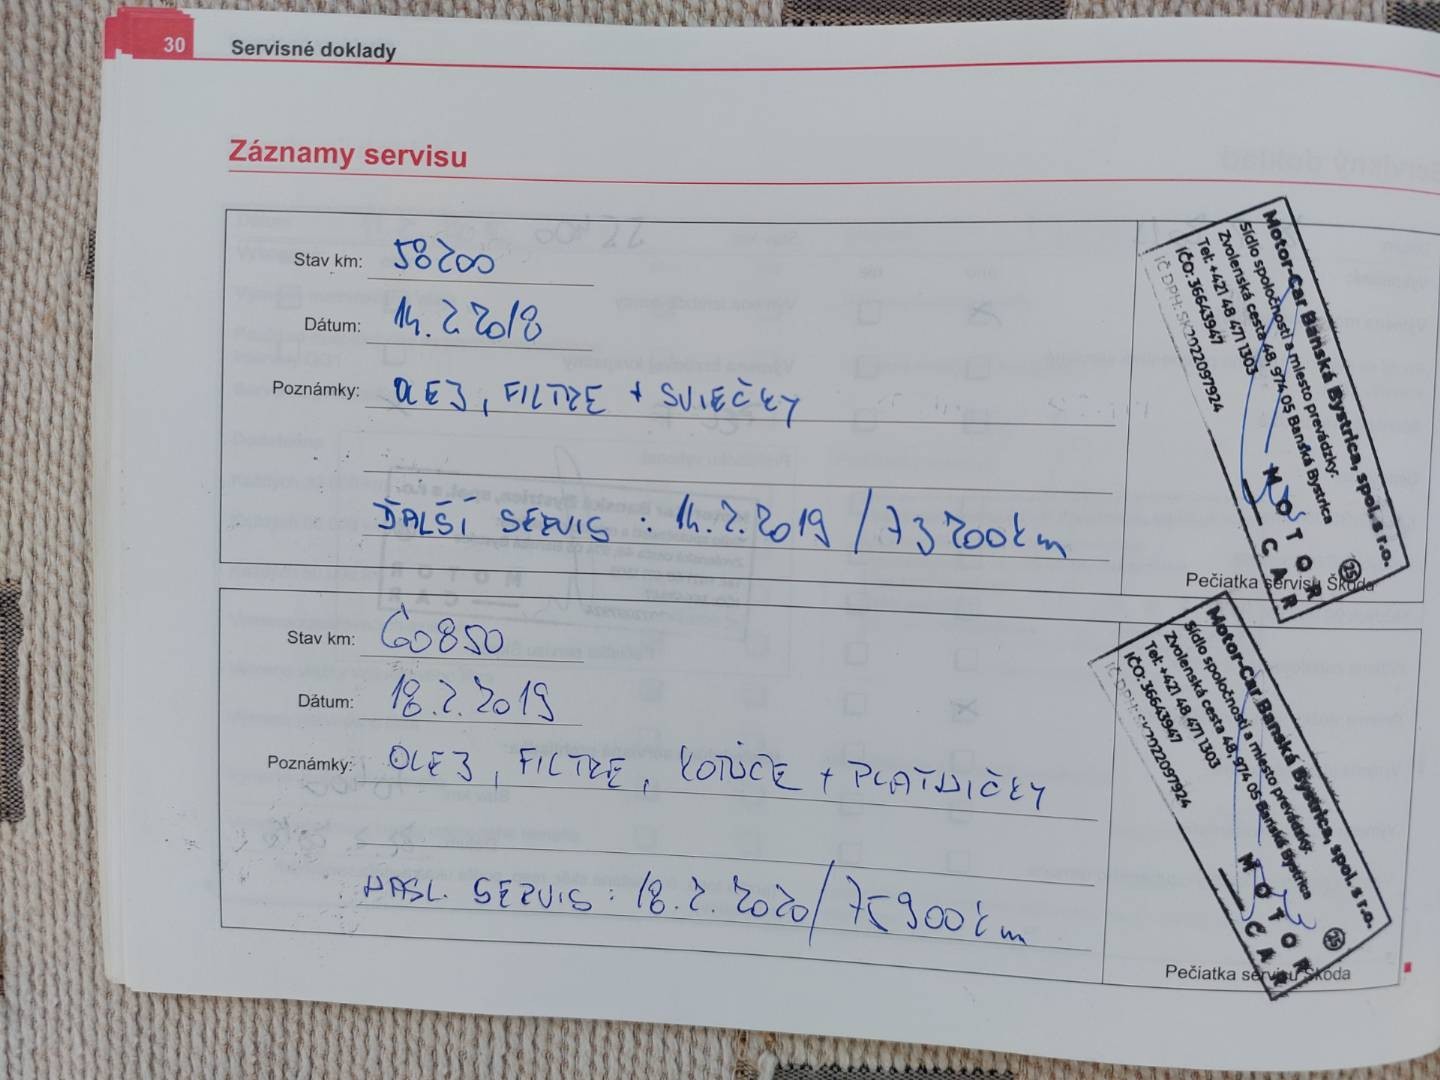 30 Servisné doklady
Záznamy servisu
Stav km: 58200
Dátum: 14.2.2018
Poznámky: OLEJ, FILTRE + SVIEČKY
ĎALŠÍ SERVIS : 14.2.2019 / 73200km
Motor-Car Banská Bystrica, spol. s r.o.
Sídlo spoločnosti a miesto prevádzky:
Zvolenská cesta 48, 974 05 Banská Bystrica
Tel: +421 48 471 1303
IČO: 36643947
IČ DPH: SK2022097924
MOTOR
CAR
25
Pečiatka servisu Škoda
Stav km: 60850
Dátum: 18.2.2019
Poznámky: OLEJ, FILTRE, KOTÚČE + PLATNIČKY
NASL. SERVIS : 18.2.2020 / 75900km
Motor-Car Banská Bystrica, spol. s r.o.
Sídlo spoločnosti a miesto prevádzky:
Zvolenská cesta 48, 974 05 Banská Bystrica
Tel: +421 48 471 1303
IČO: 36643947
IČ DPH: SK2022097924
MOTOR
CAR
25
Pečiatka servisu Škoda